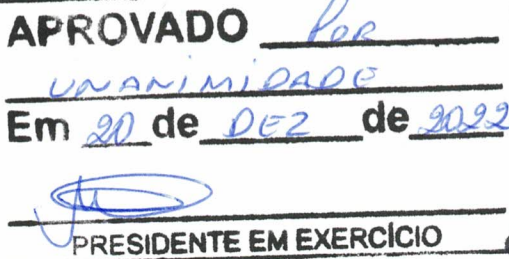 APROVADO POR
UNANIMIDADE
Em 20 de DEZ de 2022
PRESIDENTE EM EXERCÍCIO